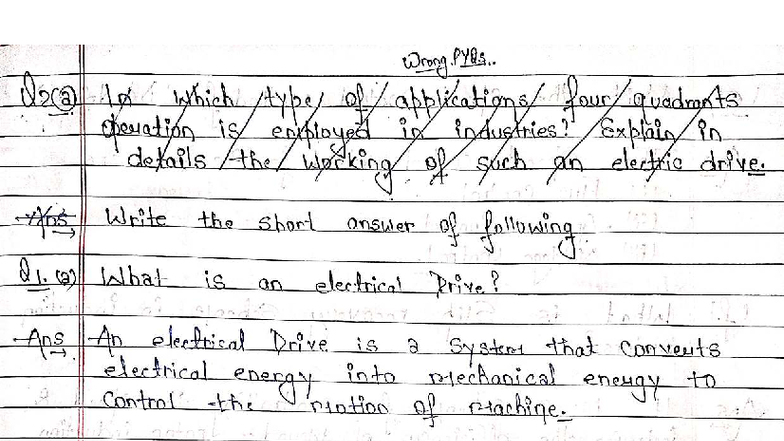 Wrong PYQs..
Q2(a) In which type of applications four quadrants
operation is employed in industries? Explain in
details the working of such an electric drive.
Ans Write the short answer of following
Q1. (a) What is an electrical Drive?
Ans An electrical Drive is a system that converts
electrical energy into mechanical energy to
control the motion of machine.